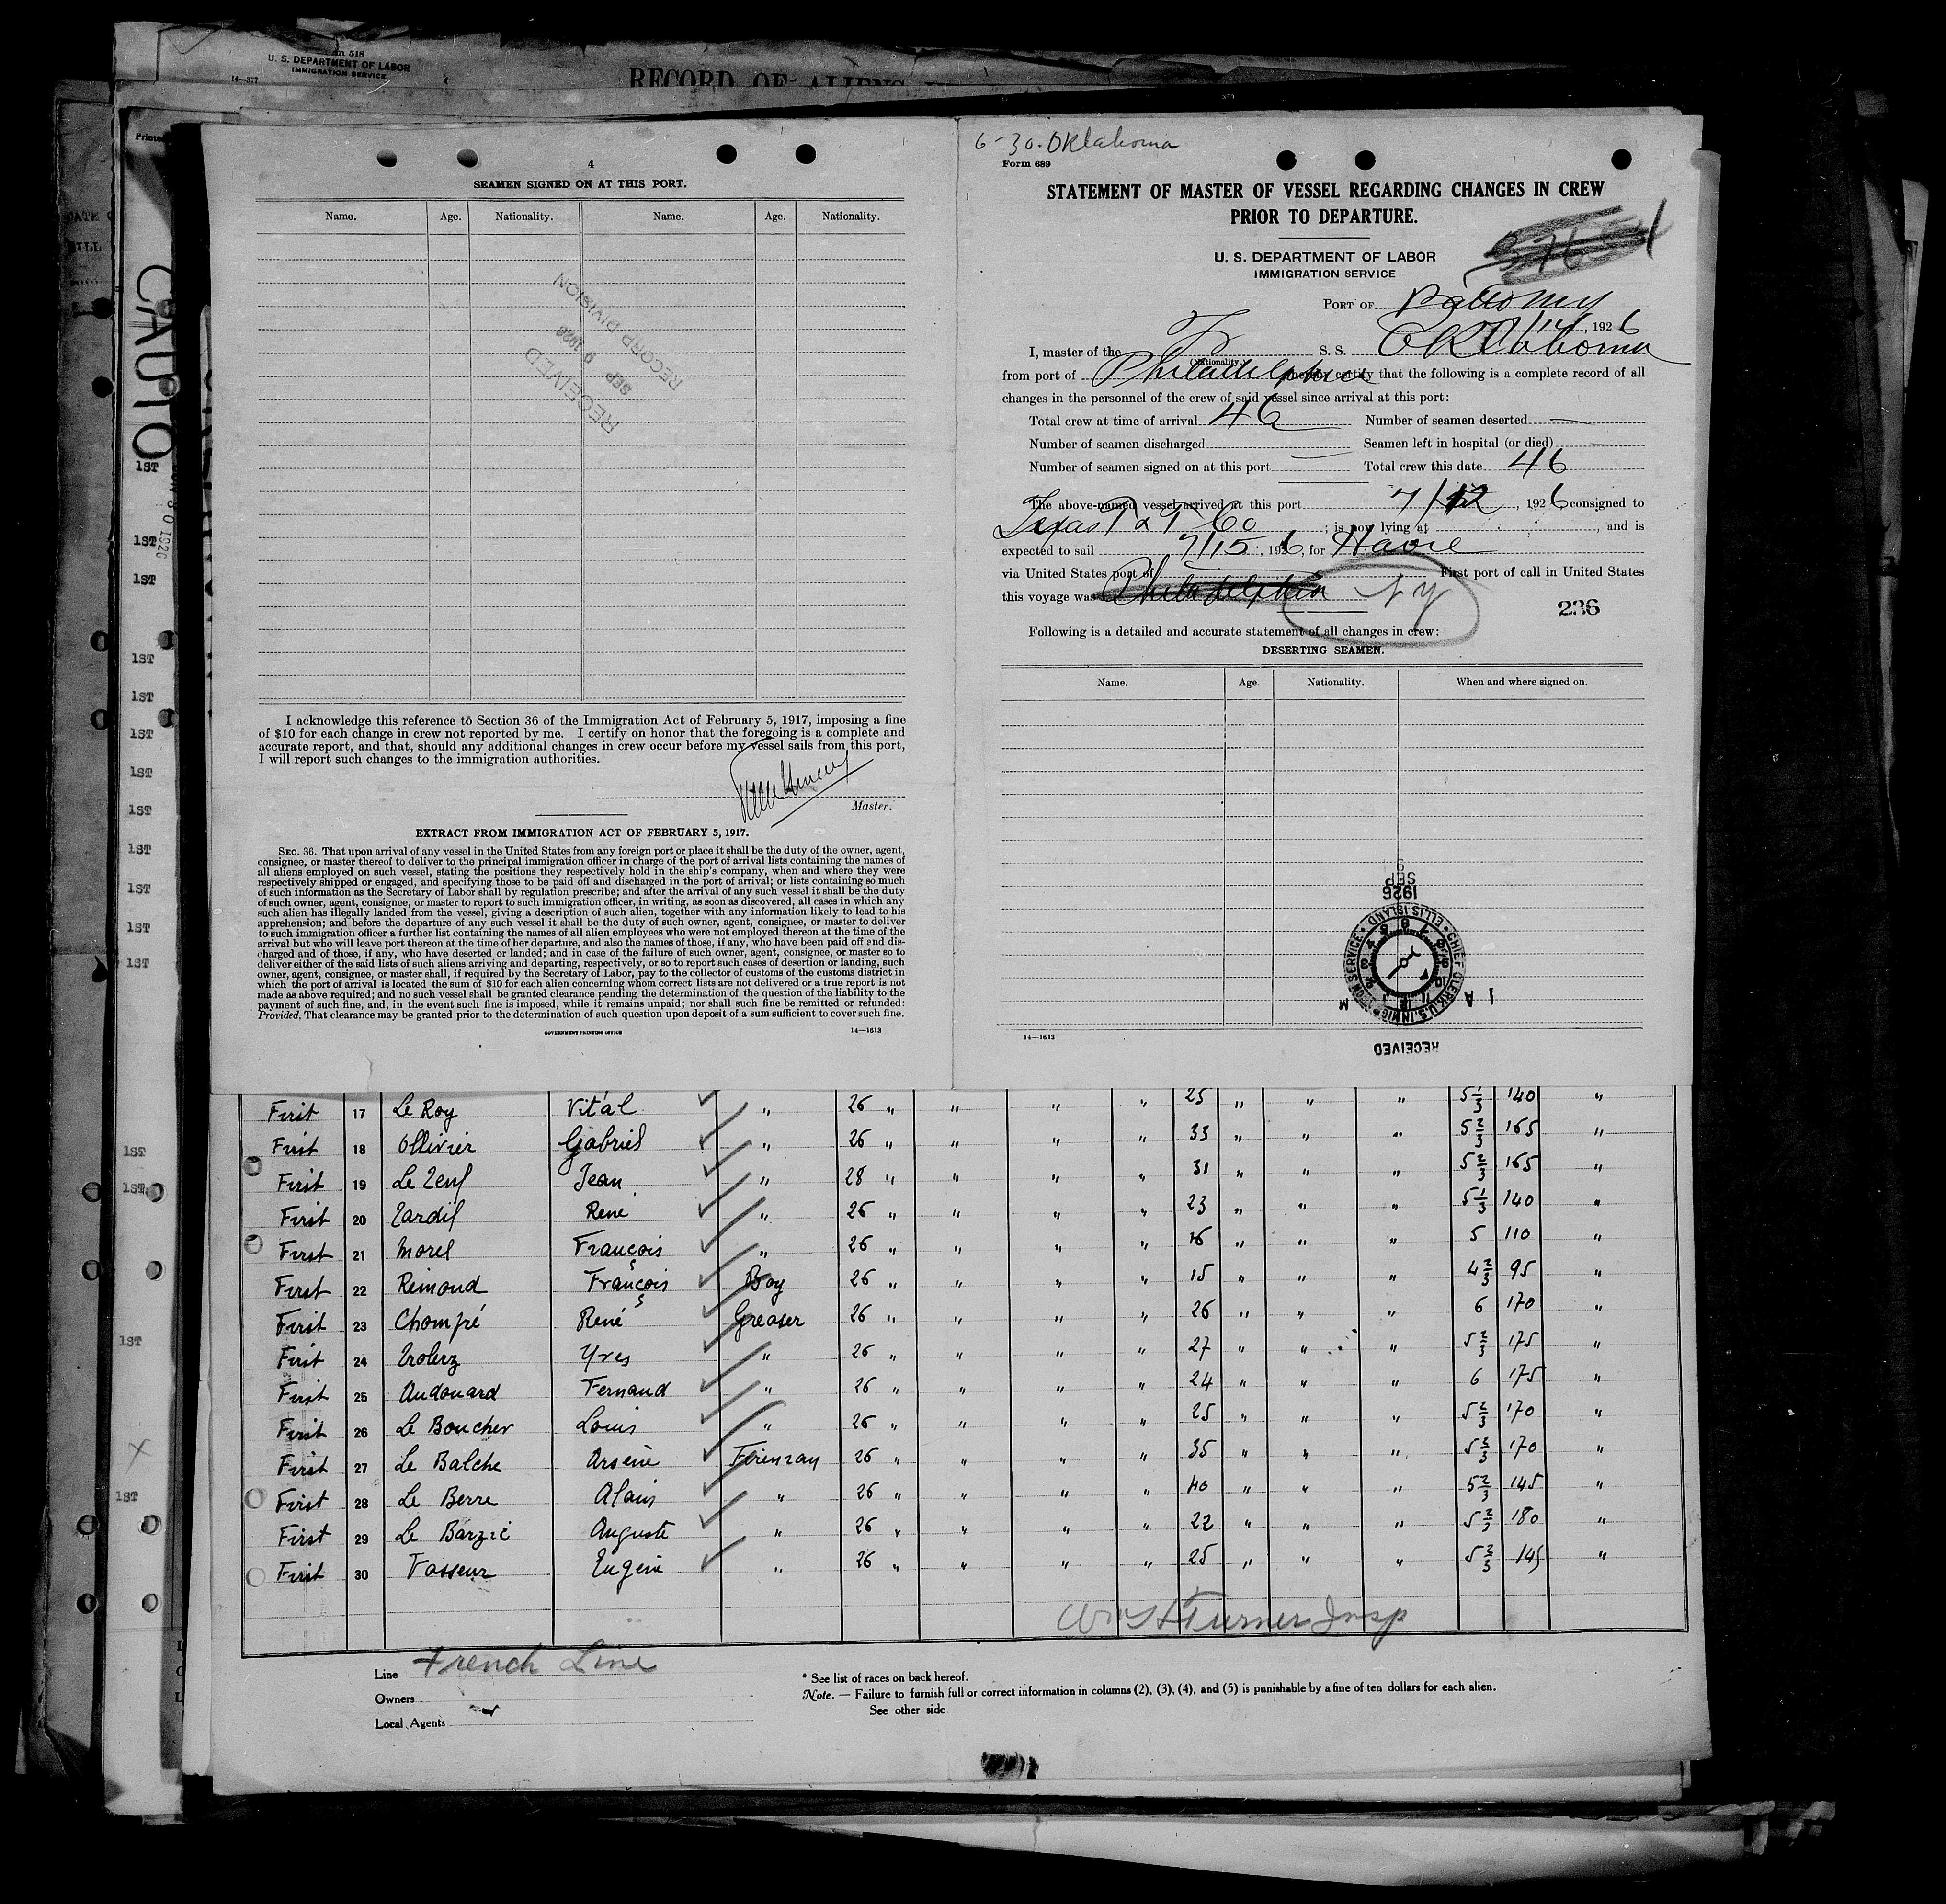 Form 518
U. S. DEPARTMENT OF LABOR
IMMIGRATION SERVICE
14—377
RECORD OF ALIENS
Printed
CAUTIO
4
SEAMEN SIGNED ON AT THIS PORT.
Name. Age. Nationality. Name. Age. Nationality.
RECEIVED
SEP 9 1926
RECORD DIVISION
I acknowledge this reference to Section 36 of the Immigration Act of February 5, 1917, imposing a fine
of $10 for each change in crew not reported by me. I certify on honor that the foregoing is a complete and
accurate report, and that, should any additional changes in crew occur before my vessel sails from this port,
I will report such changes to the immigration authorities.
Master.
EXTRACT FROM IMMIGRATION ACT OF FEBRUARY 5, 1917.
SEC. 36. That upon arrival of any vessel in the United States from any foreign port or place it shall be the duty of the owner, agent,
consignee, or master thereof to deliver to the principal immigration officer in charge of the port of arrival lists containing the names of
all aliens employed on such vessel, stating the positions they respectively hold in the ship's company, when and where they were
respectively shipped or engaged, and specifying those to be paid off and discharged in the port of arrival; or lists containing so much
of such information as the Secretary of Labor shall by regulation prescribe; and after the arrival of any such vessel it shall be the duty
of such owner, agent, consignee, or master to report to such immigration officer, in writing, as soon as discovered, all cases in which any
such alien has illegally landed from the vessel, giving a description of such alien, together with any information likely to lead to his
apprehension; and before the departure of any such vessel it shall be the duty of such owner, agent, consignee, or master to deliver
to such immigration officer a further list containing the names of all alien employees who were not employed thereon at the time of the
arrival but who will leave port thereon at the time of her departure, and also the names of those, if any, who have been paid off and dis-
charged and of those, if any, who have deserted or landed; and in case of the failure of such owner, agent, consignee, or master so to
deliver either of the said lists of such aliens arriving and departing, respectively, or so to report such cases of desertion or landing, such
owner, agent, consignee, or master shall, if required by the Secretary of Labor, pay to the collector of customs of the customs district in
which the port of arrival is located the sum of $10 for each alien concerning whom correct lists are not delivered or a true report is not
made as above required; and no such vessel shall be granted clearance pending the determination of the question of the liability to the
payment of such fine, and, in the event such fine is imposed, while it remains unpaid; nor shall such fine be remitted or refunded:
Provided, That clearance may be granted prior to the determination of such question upon deposit of a sum sufficient to cover such fine.
GOVERNMENT PRINTING OFFICE 14—1613
6-30. Oklahoma
Form 689
STATEMENT OF MASTER OF VESSEL REGARDING CHANGES IN CREW
PRIOR TO DEPARTURE.
U. S. DEPARTMENT OF LABOR
IMMIGRATION SERVICE
PORT OF
7/14, 1926
I, master of the Fr S. S. Oklahoma
(Nationality)
from port of Philadelphia hereby certify that the following is a complete record of all
changes in the personnel of the crew of said vessel since arrival at this port:
Total crew at time of arrival 46 Number of seamen deserted —
Number of seamen discharged Seamen left in hospital (or died) —
Number of seamen signed on at this port — Total crew this date 46
The above-named vessel arrived at this port 7/12, 1926 consigned to
Texas T & T Co; is now lying at , and is
expected to sail 7/15, 1926, for Havre
via United States port of First port of call in United States
this voyage was Philadelphia NY
236
Following is a detailed and accurate statement of all changes in crew:
DESERTING SEAMEN.
Name. Age. Nationality. When and where signed on.
SEP 9
1926
CHIEF CLERK, U.S. IMMIGRATION SERVICE • ELLIS ISLAND •
A M
RECEIVED
14—1613
First 17 Le Roy Vital " 26 " " " " 25 " " " 5 1/3 140 "
First 18 Ollivier Gabriel " 26 " " " " 33 " " " 5 2/3 165 "
First 19 Le Zeuf Jean " 28 " " " " 31 " " " 5 2/3 165 "
First 20 Tardif René " 26 " " " " 23 " " " 5 1/3 140 "
First 21 Morel François " 26 " " " " 16 " " " 5 110 "
First 22 Remond François Boy 26 " " " " 15 " " " 4 2/3 95 "
First 23 Chompré René Greaser 26 " " " " 26 " " " 6 170 "
First 24 Yves " 26 " " " " 27 " " " 5 2/3 175 "
First 25 Audouard Fernand " 26 " " " " 24 " " " 6 175 "
First 26 Le Boucher Louis " 26 " " " " 25 " " " 5 2/3 170 "
First 27 Le Balche Arsène Fireman 26 " " " " 35 " " " 5 2/3 170 "
First 28 Le Berre Alain " 26 " " " " 40 " " " 5 2/3 145 "
First 29 Le Barzic Auguste " 26 " " " " 22 " " " 5 2/3 180 "
First 30 Vasseur Eugène " 26 " " " " 25 " " " 5 2/3 145 "
Wm H Turner Insp
Line French Line
Owners
Local Agents
* See list of races on back hereof.
Note. — Failure to furnish full or correct information in columns (2), (3), (4), and (5) is punishable by a fine of ten dollars for each alien.
See other side